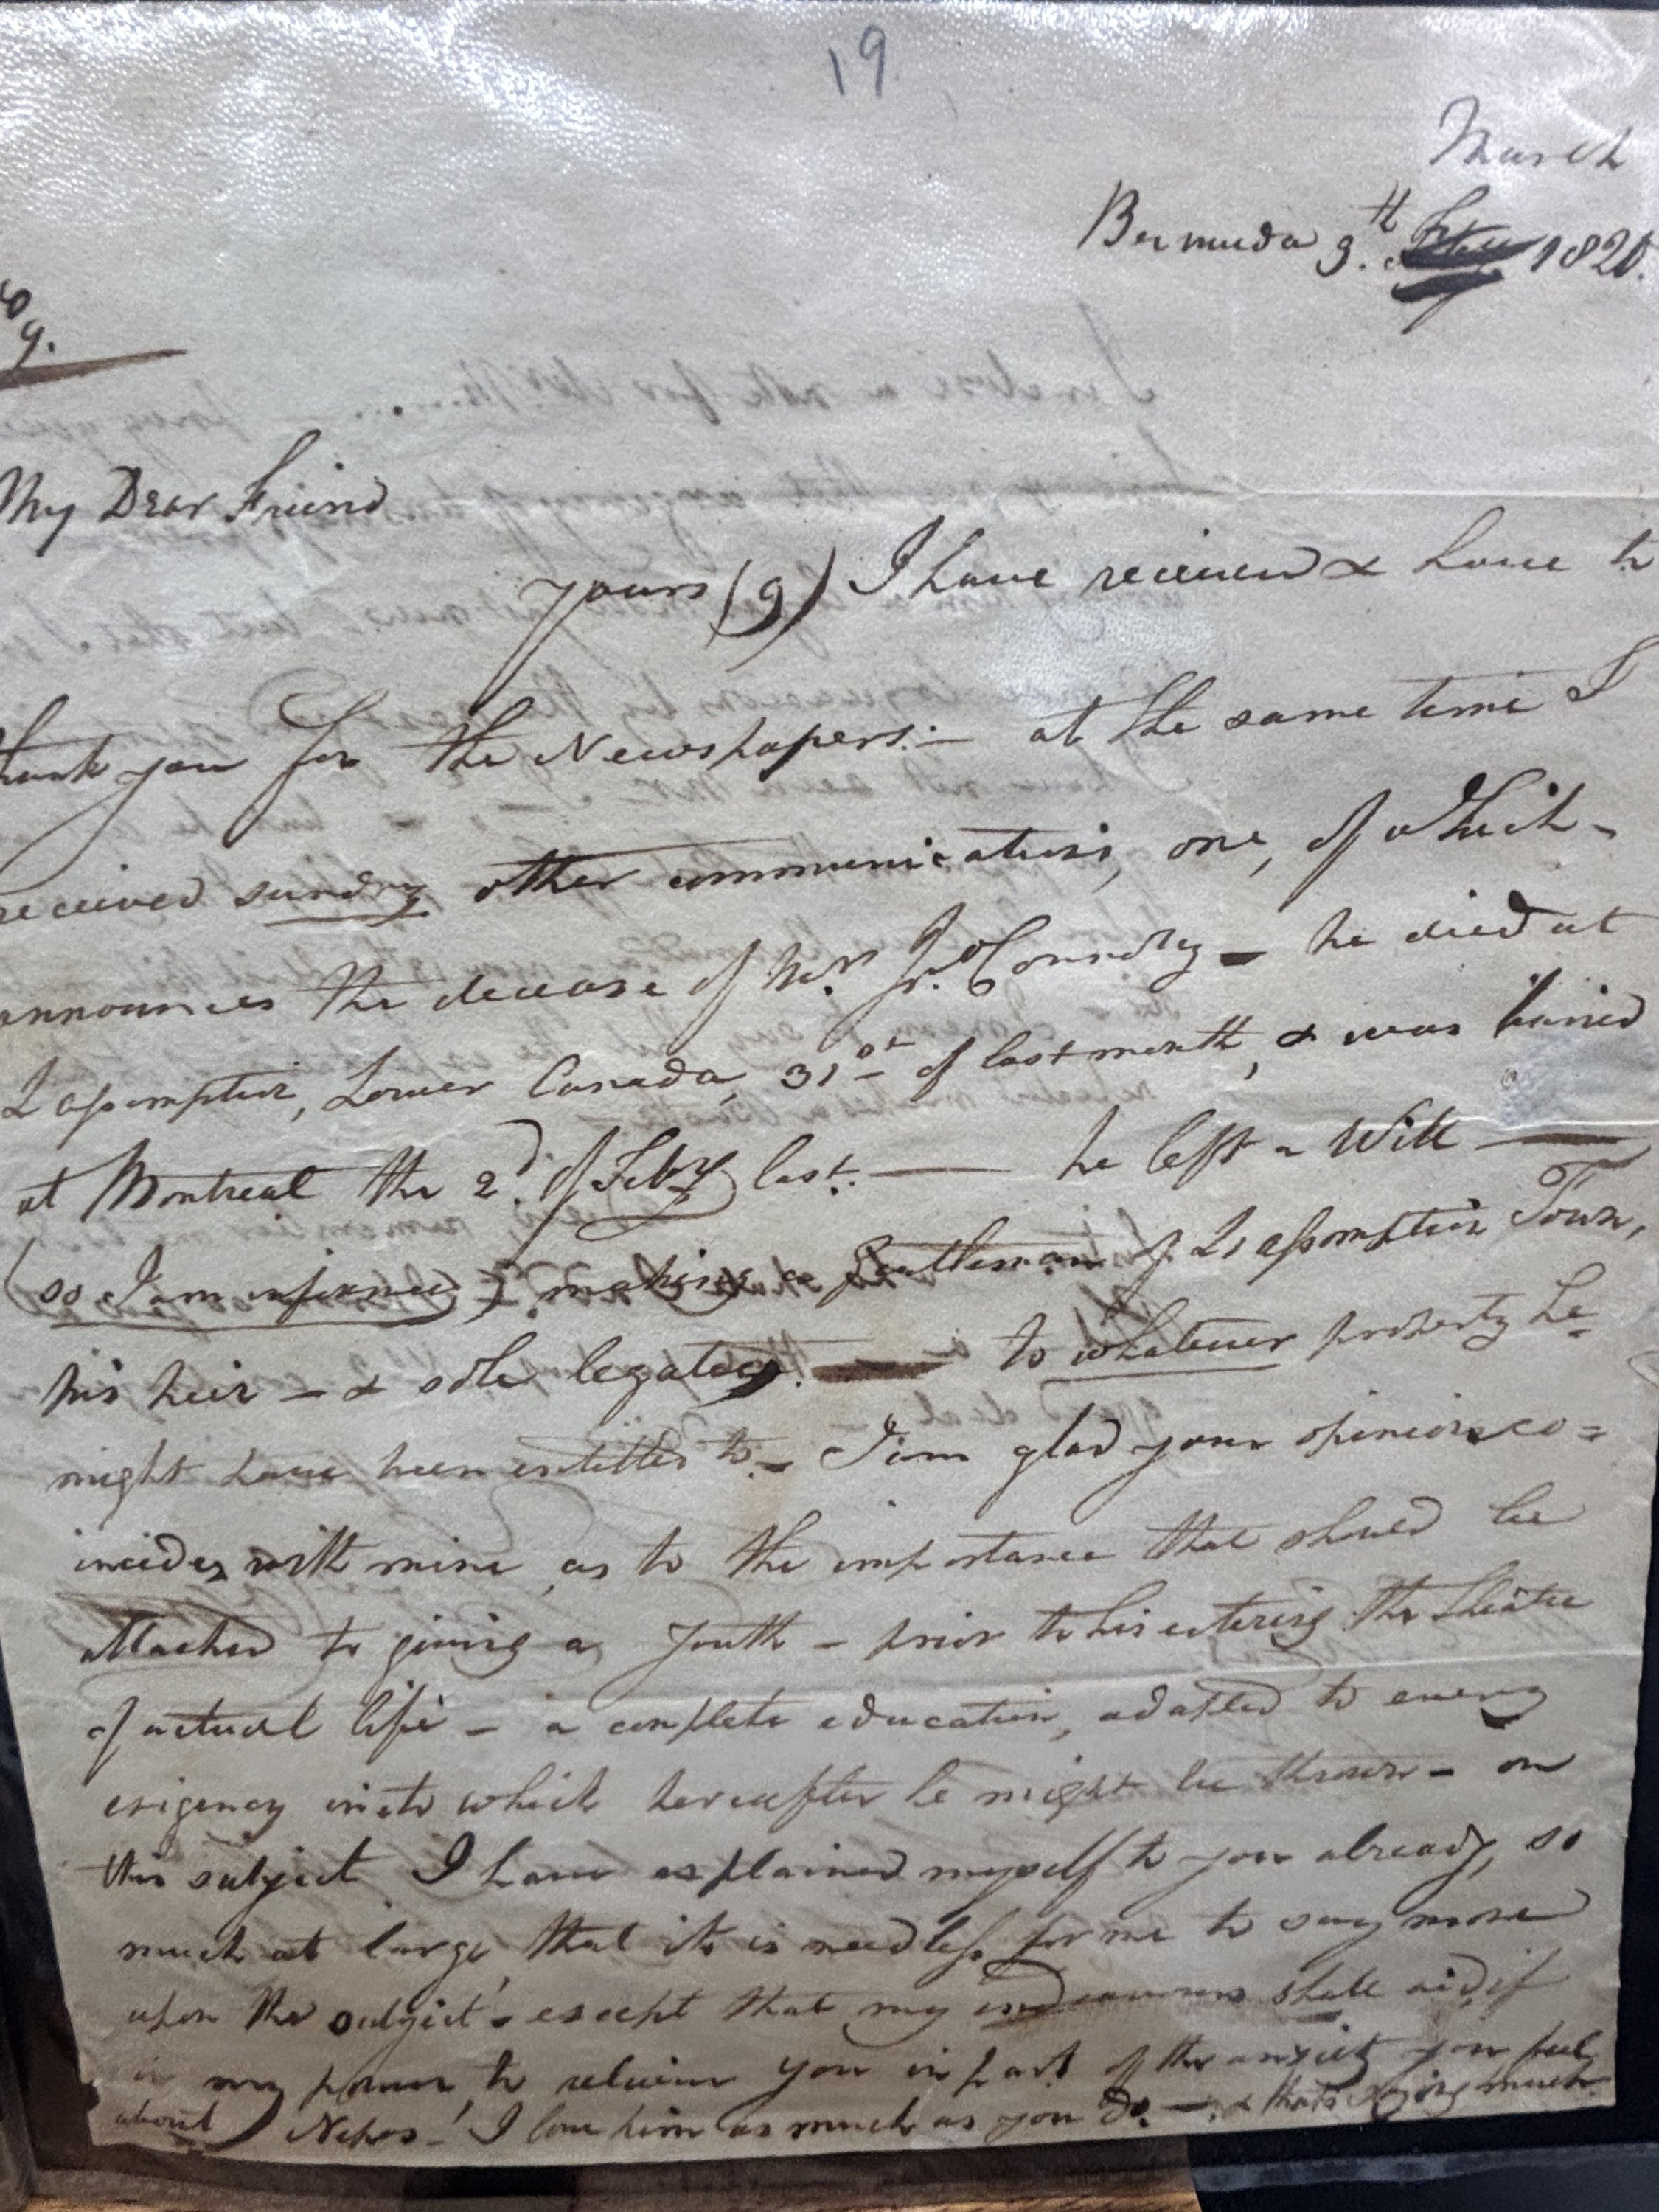 19
March
Bermuda 9.th 1820.
9.
My Dear Friend
yours (9) I have received & have to
thank you for the Newspapers:— at the same time I
received sundry other communications, one, of which-
announces the decease of Mr. Jn. Connolly — he died at
L'assomption, Lower Canada, 31st of last month, & was buried
at Montreal the 2d. of Feby last.— he left a Will —
(so I am informed) making a gentleman of L'assomption Town,
his heir — & sole legatee. — to whatever property he-
might have been entitled to.— I am glad your opinion co=
incides with mine, as to the importance that should be
attached to giving a youth — prior to his entering the theatre
of actual life — a complete education, adapted to every
exigency into which hereafter he might be thrown — on
this subject I have explained myself to you already, so
much at large, that it is needless for me to say more
upon the subject — except that my endeavours shall aid, if
in my power, to relieve you in part of the anxiety you feel
about Nepos —! I love him as much as you do. — & that's saying much